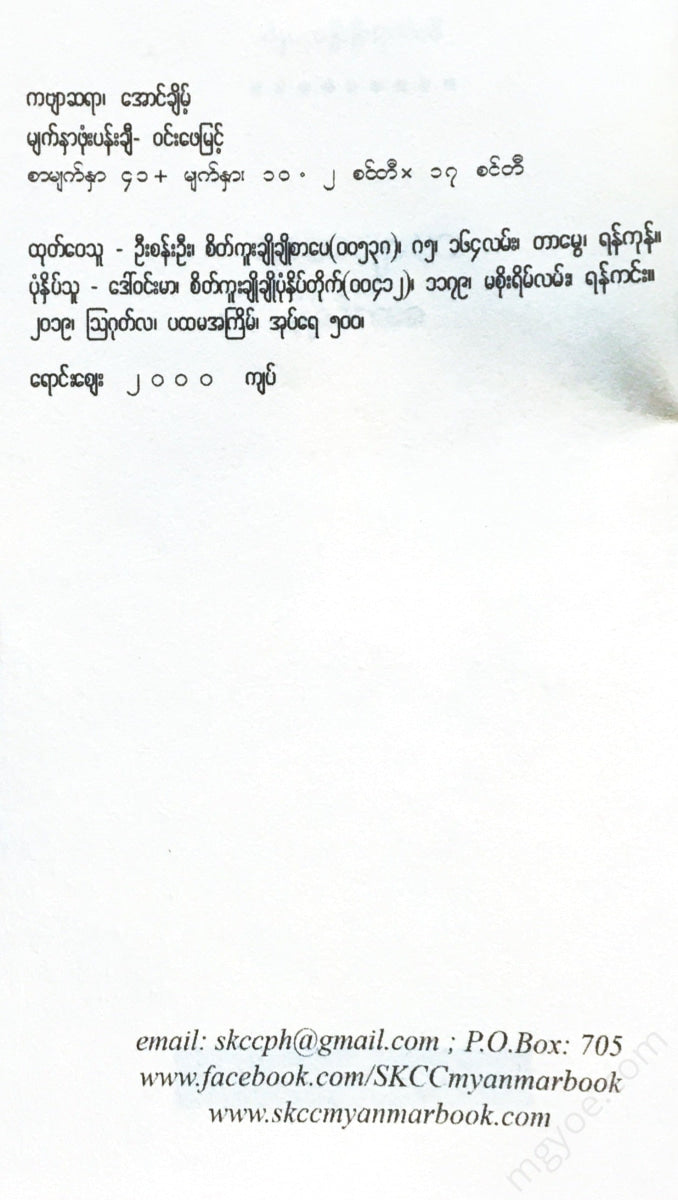 ကဗျာဆရာ၊ အောင်ချိမ့်
မျက်နှာဖုံးပန်းချီ- ဝင်းဖေမြင့်
စာမျက်နှာ ၄၁+ မျက်နှာ၊ ၁၀.၂ စင်တီ× ၁၇ စင်တီ
ထုတ်ဝေသူ - ဦးစန်းဦး၊ စိတ်ကူးချိုချိုစာပေ(၀၀၅၃၈)၊ ၈၅၊ ၁၆၄လမ်း၊ တာမွေ၊ ရန်ကုန်။
ပုံနှိပ်သူ - ဒေါ်ဝင်းမာ၊ စိတ်ကူးချိုချိုပုံနှိပ်တိုက်(၀၀၄၁၂)၊ ၁၁၇၉၊ မစိုးရိမ်လမ်း၊ ရန်ကင်း။
၂၀၁၉၊ ဩဂုတ်လ၊ ပထမအကြိမ်၊ အုပ်ရေ ၅၀၀၊
ရောင်းဈေး ၂၀၀၀ ကျပ်
email: skccph@gmail.com ; P.O.Box: 705
www.facebook.com/SKCCmyanmarbook
www.skccmyanmarbook.com
mgyoe.com